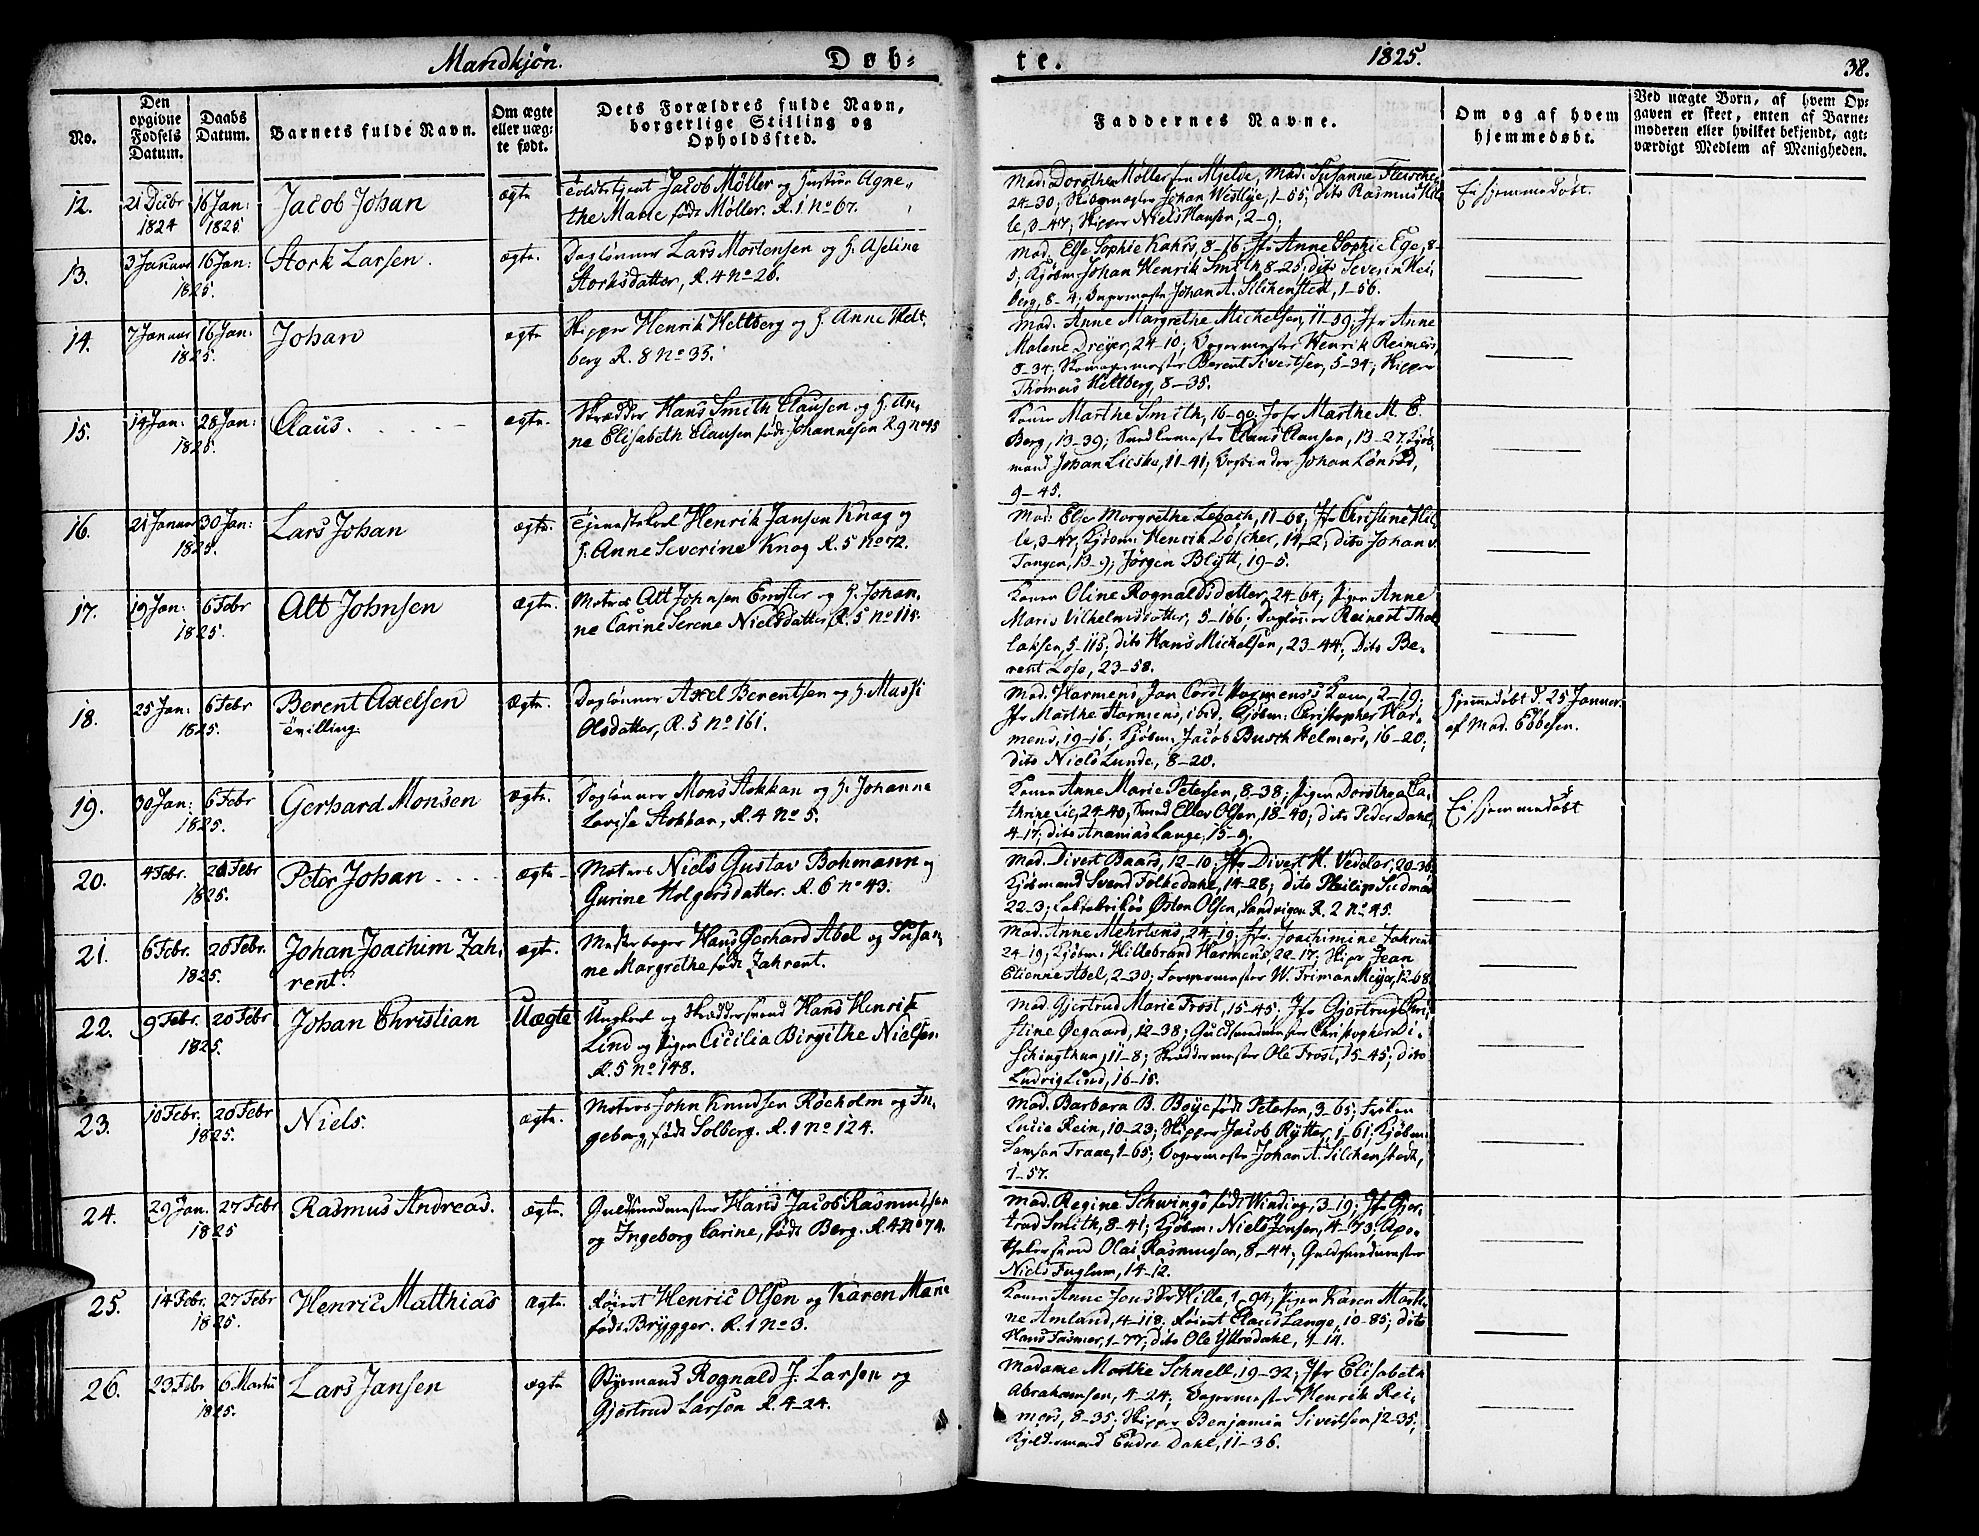 Mandkjøn. Døb-
te. 1825. 38.
No.
Den opgivne Fødsels Datum.
Daabs Datum.
Barnets fulde Navn.
Om ægte eller uæg- te født.
Dets Forældres fulde Navn, borgerlige Stilling og Opholdssted.
Faddernes Navne.
Om og af hvem hjemmedøbt.
Ved uægte Børn, af hvem Op- gaven er skeet, enten af Barne- moderen eller hvilket bekjendt, agt- værdigt Medlem af Menigheden.
12. 21 Decbr 1824 16 Jan: 1825 Jacob Johan ægte
Jacob Møller og Hustrue Agne-
the Marie født Møller. R. 1 No 67.
Mad. Dorothea Møller fra Mjelde, Mad. Susanne Fleischer
24-30; Johan Westlye, 1-55; dito Rasmus Hil-
le, 3-47; Skipper Niels Hansen, 2-9;
Ei hjemmedøbt.
13. 3 Januar 16 Jan: 1825. Stork Larsen. ægte.
Daglønner Lars Mortensen og H. Aseline
Storksdatter, R. 4 No 26.
Mad. Else Sophie Kahrs, 8-16; Jfr Anne Sophie Ege, 8-
5; Kjøbm. Johan Henrik Smith 8-25; dito Severin Hei-
berg, 8-4; Bagermester Johan A. Silchenstedt, 1-56.
14. 7 Januar 16 Jan: 1825. Johan ægte
Skipper Henrik Heltberg og H. Anne Helt-
berg R. 8 No 35.
Mad. Anne Margrethe Michelsen, 11-59; Jfr Anne
Malene Dreyer, 24-10; Bagermester Henrik Reimers,
8-34; Skomagermester Berent Sivertsen, 5-34; Skipper
Thomas Heltberg, 8-35.
15. 14 Jan: 28 Jan: 1825. Claus. ægte.
Skrædder Hans Smith Clausen og H. An-
ne Elisabeth Clausen født Johannesen R. 9 No 45
Konen Marthe Smith, 16-90; Jofr Marthe M. C.
Berg, 13-39; Snedkermester Claus Clausen, 13-27; Kjøb-
mand Johan Lieske, 11-41; Bogbinder Johan Lönrod,
9-45.
16. 21 Januar 30 Jan: 1825. Lars Johan ægte.
Tjenestekarl Henrik Jansen Knag og
H. Anne Severine Knag R. 5 No 72.
Mad. Else Margrethe Lebach, 11-68; Jfr Christine Hil-
le, 3-47; Kjøbm: Henrik Döscher, 14-2; dito Johan v.
Tangen, 13-9; Jørgen Blytt, 19-5.
17. 19 Jan: 6 Febr 1825. Alt Johnsen ægte.
Matros Alt Johnsen og H. Johan-
ne Carine Serene Nielsdatter, R. 5 No 115.
Konen Oline Rognaldsdatter, 24-64; Pigen Anne
Maris Vilhelmsdatter, 5-166; Dagløner Reinert Thor-
laksen, 5-115; dito Hans Michelsen, 23-44; Dito Be-
rent Lose, 23-58.
18. 25 Jan: 6 Febr 1825. Berent Axelsen
Tvilling. Ægte.
Daglønner Axel Berentsen og H.
Olsdatter, R. 5 No 161.
Mad. Harmens, Jan Cordt Harmenses Kone, 2-19;
Jfr Marthe Harmens, ibid. Kjøbm: Christopher Har-
mens, 19-16; Kjøbm. Jacob Busch Helmers, 16-20;
dito Niels Lunde, 8-20.
Hjemmedøbt d. 25 Januar
af Mad. Ebbesen.
19. 30 Jan: 6 Febr 1825. Gerhard Monsen ægte.
Daglønner Mons Stokkan og H. Johanne
Lovise Stokkan, R. 4 No 5.
Konen Anne Marie Petersen, 8-38; Pigen Dorothea Ca-
thrine Lie, 24-40; Ellev Olsen, 18-40; dito Peder Dahl,
4-17; dito Ananias Lange, 15-9.
Ei hjemmedøbt
20. 4 Febr. 20 Febr 1825. Peter Johan ægte
Matros Niels Gustav Bohmann og
Gurine Holgersdatter. R. 6 No 43.
Mad. Divert Baard, 12-10; Jfr Divert H. Vedeler, 20-36;
Kjøbmand Svend Folkedahl, 14-28; dito Philip Sudman
22-3; Østen Olsen, Sandvigen R. 2 No 45.
21. 6 Febr. 20 Febr. 1825. Johan Joachim Zah-
rent. ægte.
Hans Gerhard Abel og Susan-
ne Margrethe født Zahrent.
Mad. Anne Mehrtens, 24-19; Jfr. Joachimine Zahrent
24-19; Kjøbm: Hillebrand Harmens, 22-17; Skipr Jean
Etienne Abel, 2-30; Farvermester W. Friman Meyer, 12-68.
22. 9 Febr. 20 Febr 1825. Johan Christian Uægte
Ungkarl og Skræddersvend Hans Henrik
Lind og Pigen Cicilia Birgithe Nielsen.
R. 5 No 148.
Mad. Gjertrud Marie Frost, 15-45; Jfr Gjertrug Chri-
stine Øegaard, 12-38; Guldsmedmester Christopher Di-
Schington, 11-8; Skræddermester Ole Frost, 15-45; dito
Ludvig Lind, 16-15.
23. 10 Febr. 20 Febr 1825. Niels. ægte.
Matros John Knudsen Röcholm og In-
geborg, født Solberg. R. 1 No 124.
Mad. Barbara B. Böye født Petersen, 3-65; Frøken
Lucie Rein, 10-23; Skipper Jacob Rytter, 1-61; Kjøbm:
Samson Traae, 1-65; Bagermester Johan A. Silchenstedt,
1-57.
24. 29 Jan. 27 Febr 1825 Rasmus Andreas. ægte.
Guldsmedmester Hans Jacob Rasmussen
og Ingeborg Carine, født Berg. R. 4 No 74.
Mad. Regine Schwings født Winding, 3-19; Jfr Gjer-
trud Smith, 8-41; Kjøbm: Niels Jensen, 4-73; Apo-
thekersvend Olai Rasmussen, 8-44; Guldsmedmester
Niels Fuglum, 14-12.
25. 14 Febr. 27 Febr 1825. Henric Matthias Ægte.
Henric Olsen og Karen Marie
født Brygger. R. 1 No 3.
Konen Anne Hille, 1-94; Pigen Karen Marti-
ne Amland, 4-118; Claus Lange, 10-85; dito
Hans Fasmer, 1-77; dito Ole Yttredahl, 4-14.
26. 23 Febr 6 Martii 1825. Lars Jansen ægte
Styrmand Rognald J. Larsen og
Gjertrud Larsen R. 4-24.
Madame Marthe Schnell, 19-32; Jfr Elisabeth
Abrahamsen, 4-24; Bagermester Henrik Rei-
mers, 8-35; Skipper Benjamin Sivertsen, 12-35;
Kjeldermand Endre Dahl, 11-36.